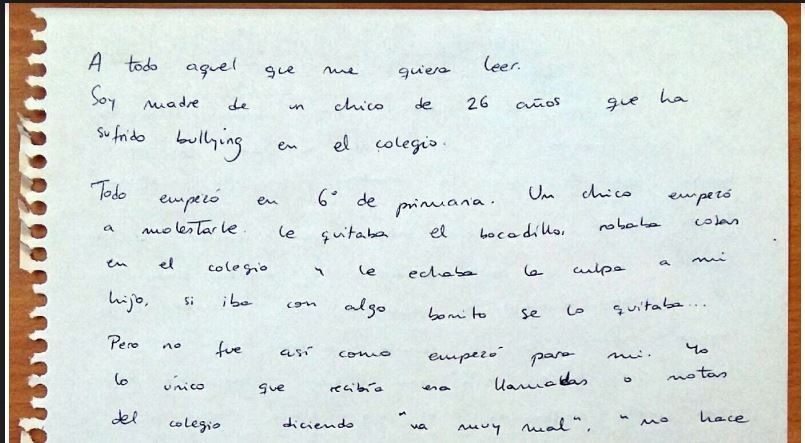 A todo aquel que me quiera leer.
Soy madre de un chico de 26 años que ha
sufrido bullying en el colegio.
Todo empezó en 6º de primaria. Un chico empezó
a molestarle. le quitaba el bocadillo, robaba cosas
en el colegio y le echaba la culpa a mi
hijo, si iba con algo bonito se lo quitaba...
Pero no fue así como empezó para mi. Yo
lo único que recibía era llamadas o notas
del colegio diciendo "va muy mal", "no hace